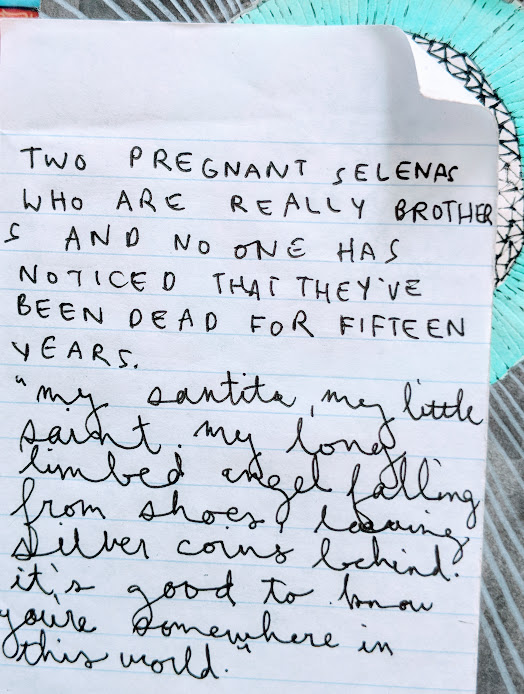 TWO PREGNANT SELENAS
WHO ARE REALLY BROTHER
S AND NO ONE HAS
NOTICED THAT THEY'VE
BEEN DEAD FOR FIFTEEN
YEARS.
"my santita, my little
saint. my long
limbed angel falling
from shoes, leaving
silver coins behind.
it's good to know
you're somewhere in
this world."